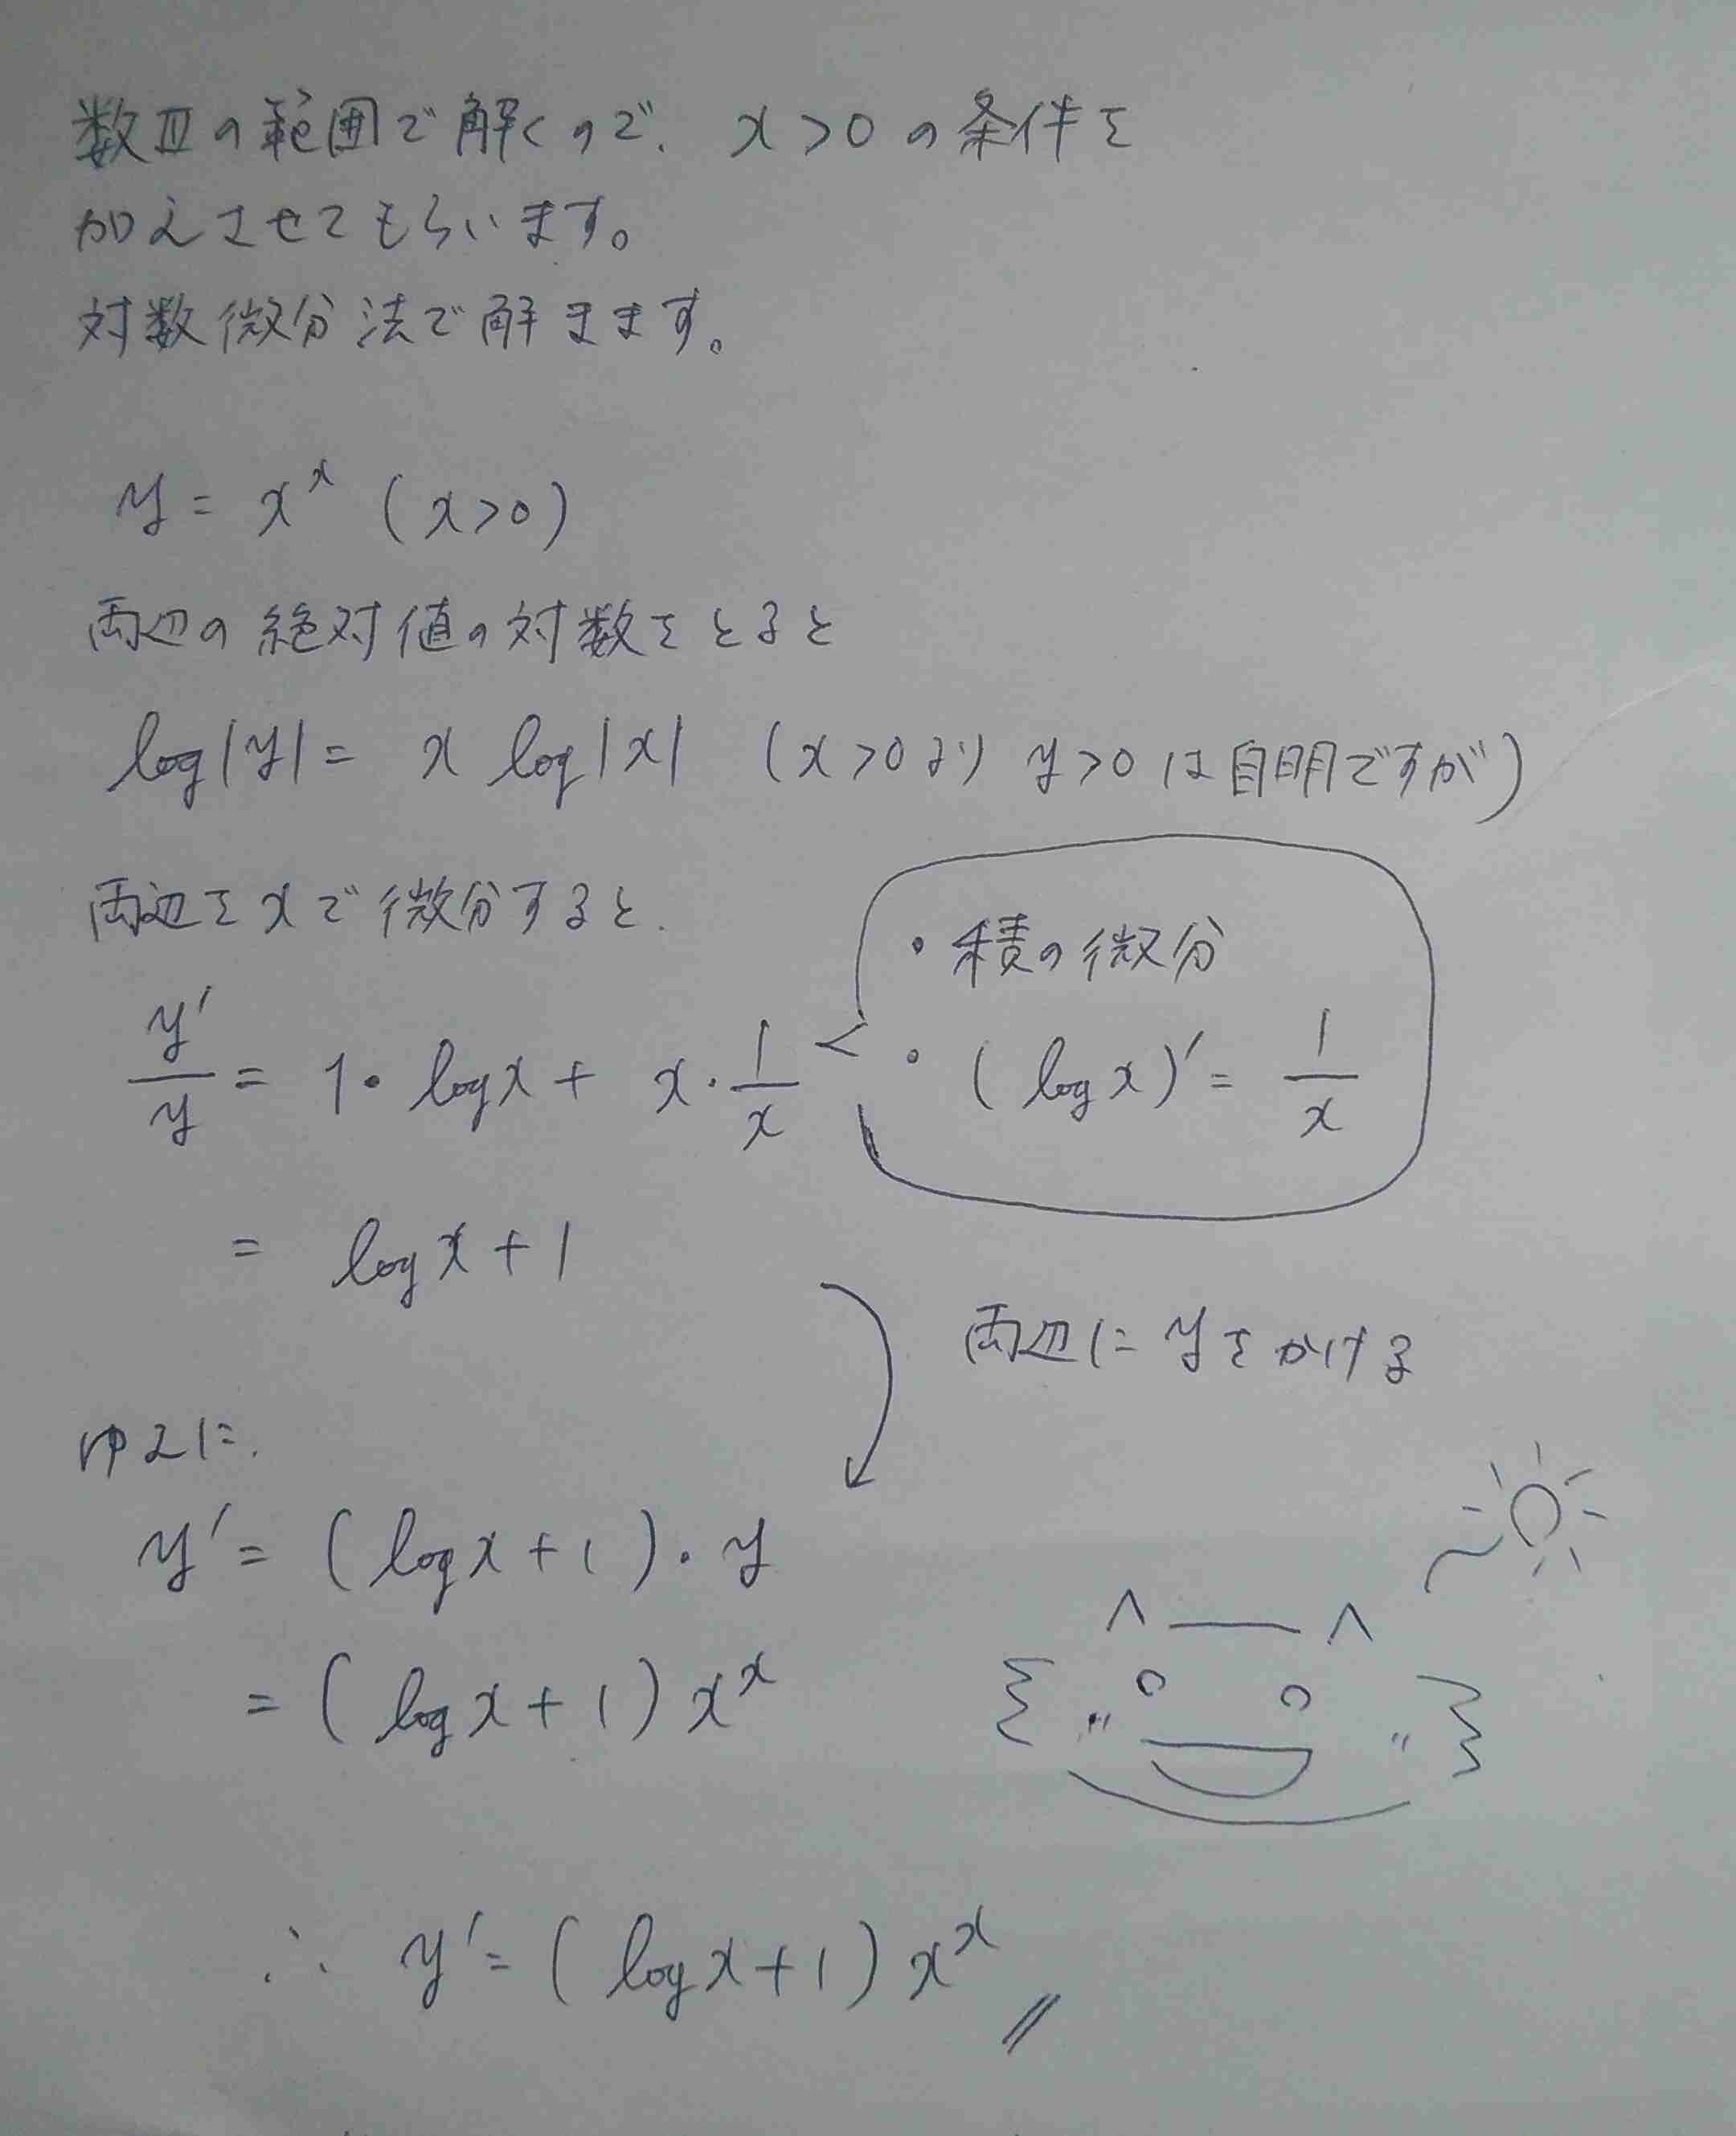 数Ⅲの範囲で解くので、x>0の条件を
加えさせてもらいます。
対数微分法で解きます。
y = x^x (x>0)
両辺の絶対値の対数をとると
log|y| = x log|x| (x>0より y>0は自明ですが)
両辺をxで微分すると、
・積の微分
y'/y = 1・logx + x・1/x
・(logx)' = 1/x
= logx + 1
両辺にyをかける
ゆえに、
y' = (logx + 1)・y
= (logx + 1) x^x
∴ y' = (logx + 1) x^x //